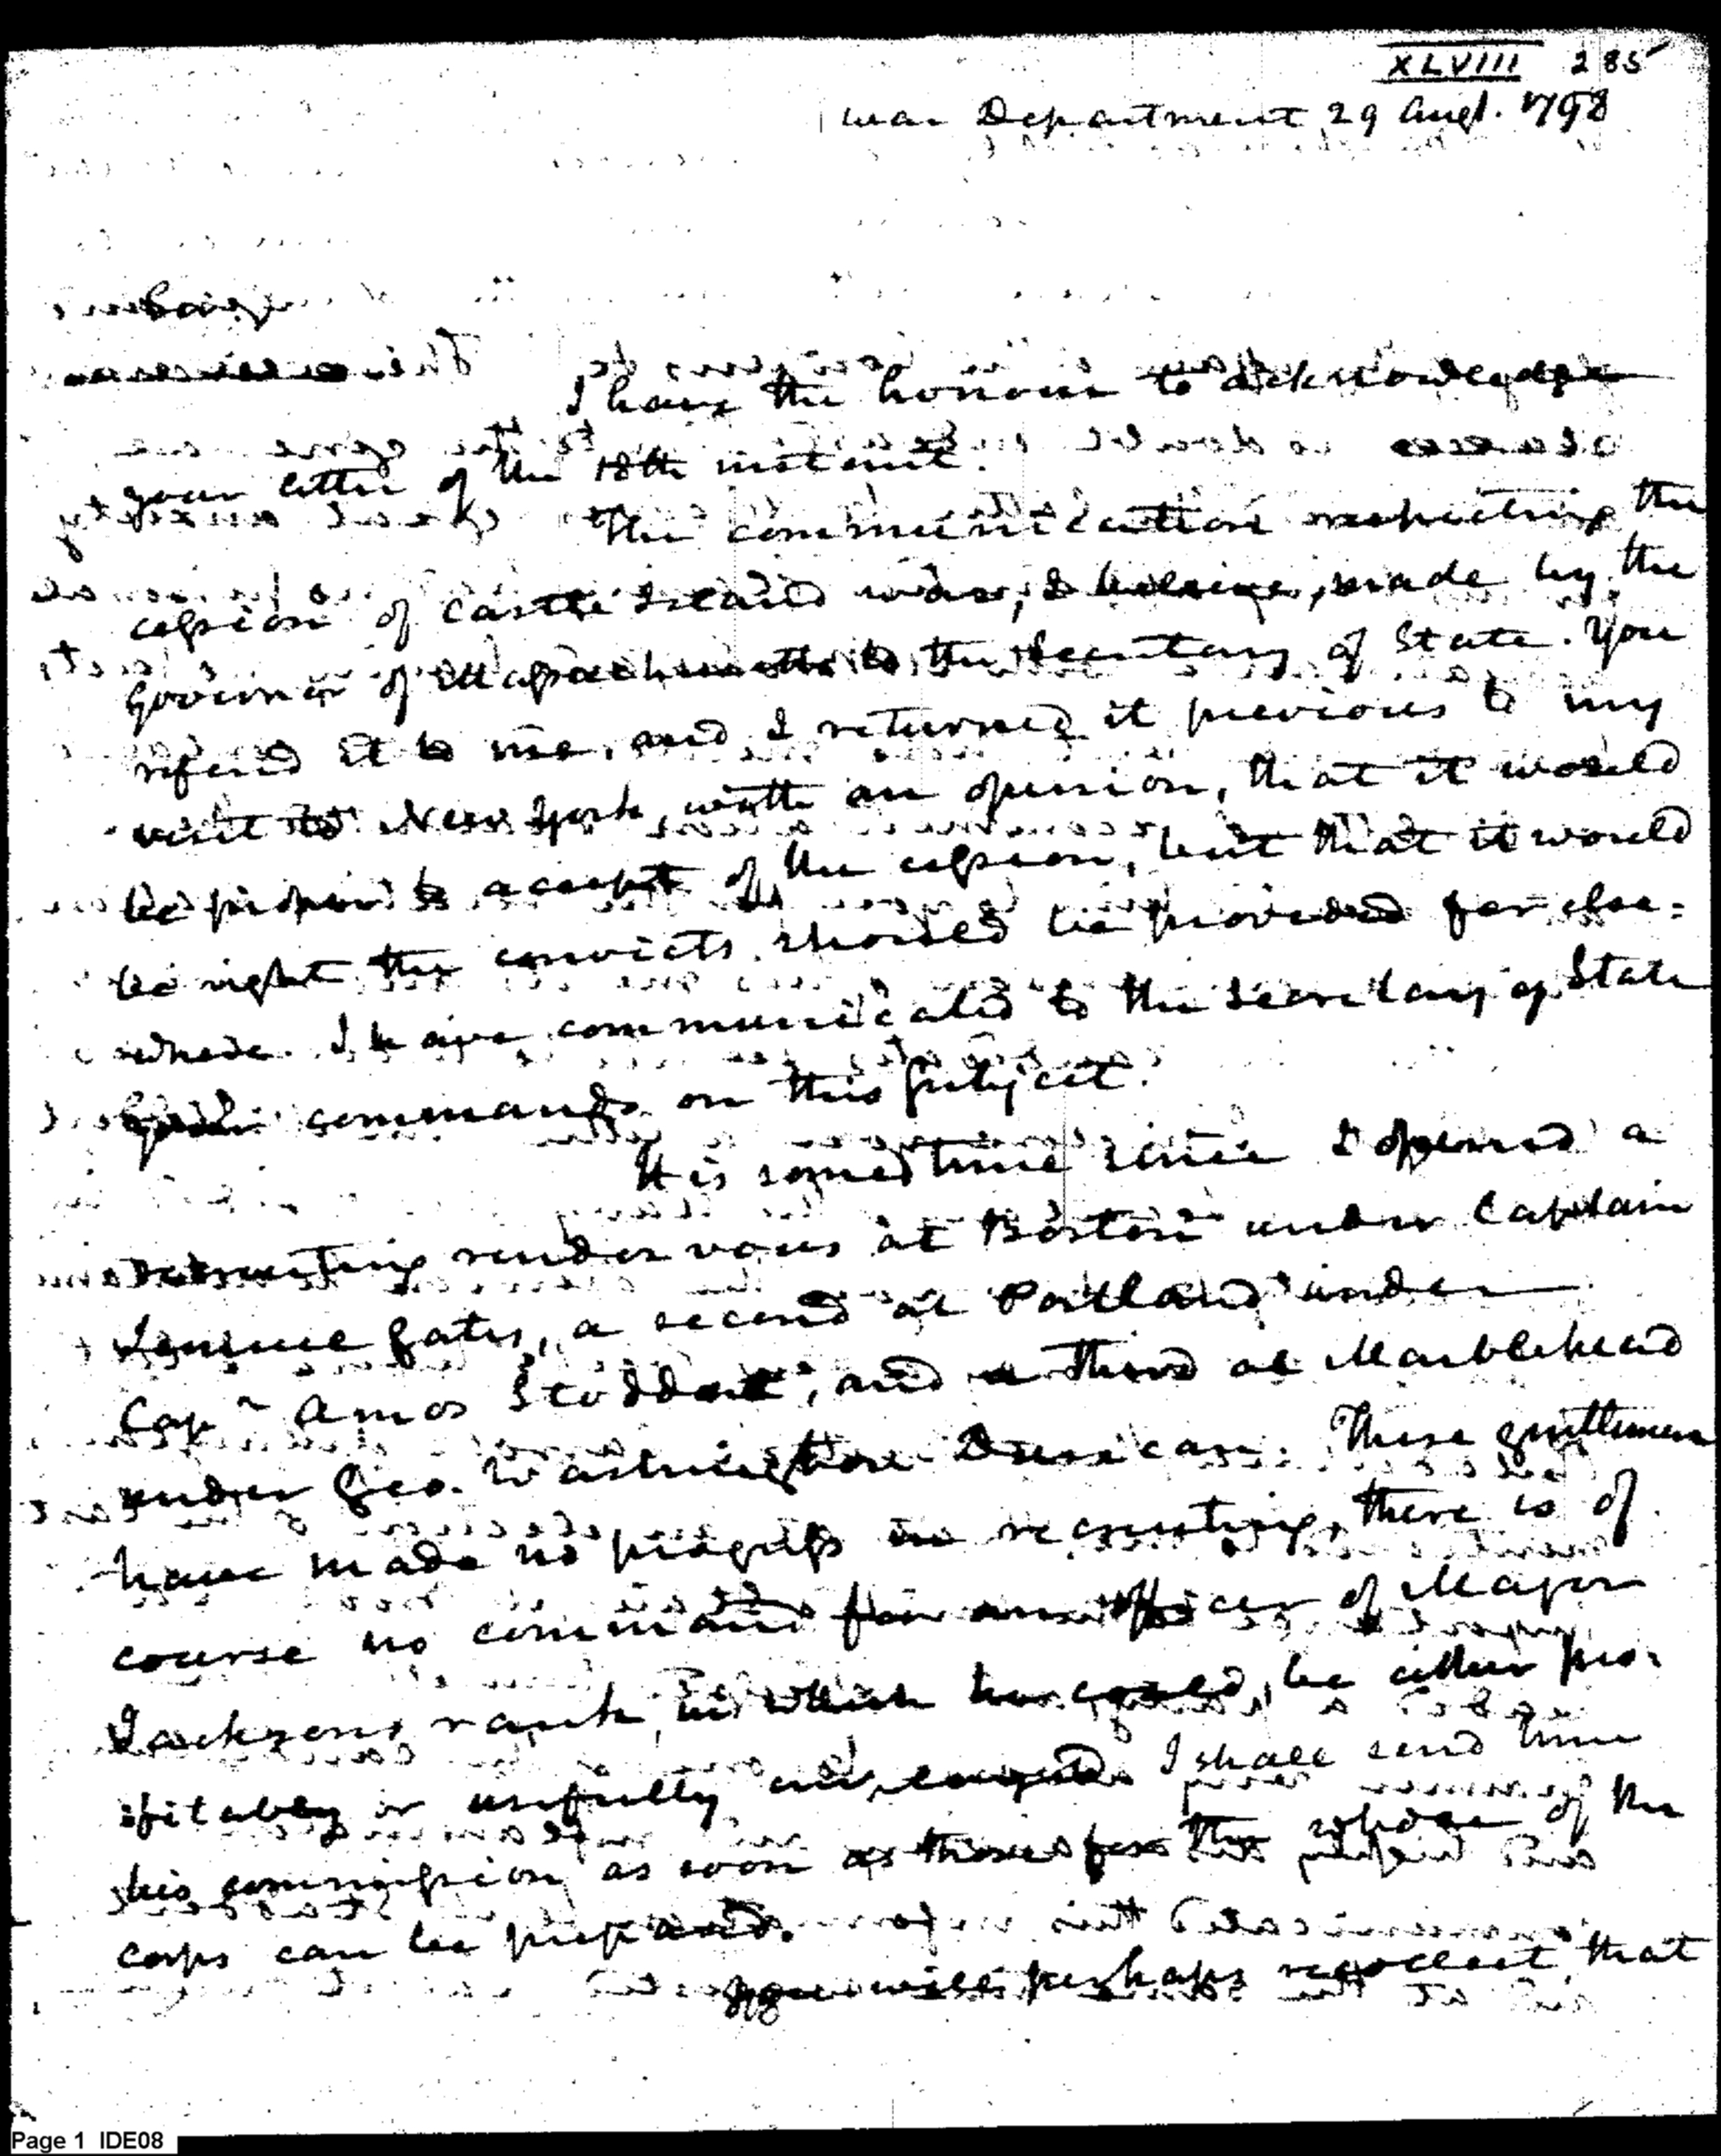 XLVIII 285
War Department 29 Augt. 1798
I have the honour to acknowledge
your letter of the 18th instant.
The communication respecting the
cession of Castle Island was, I believe, made by the
Governor of Massachusetts to the Secretary of State. You
referred it to me, and I returned it previous to my
visit to New York, with an opinion, that it would
be proper to accept of the cession, but that it would
be right the convicts should be provided for else=
where. I have communicated to the Secretary of State
your commands on this subject.
It is some time since I opened a
recruiting rendezvous at Boston under Captain
Lemuel Gates, a second at Portland under
Capn Amos Stoddart, and a third at Marblehead
under Geo. Washington Duncan. These gentlemen
have made no progress in recruiting, there is of
course no command for an officer of Major
Jacksons rank, in which he could, be either pro=
fitably or usefully employed. I shall send him
his commission as soon as those for the whole of the
corps can be prepared.
You will perhaps recollect that
Page 1 IDE08